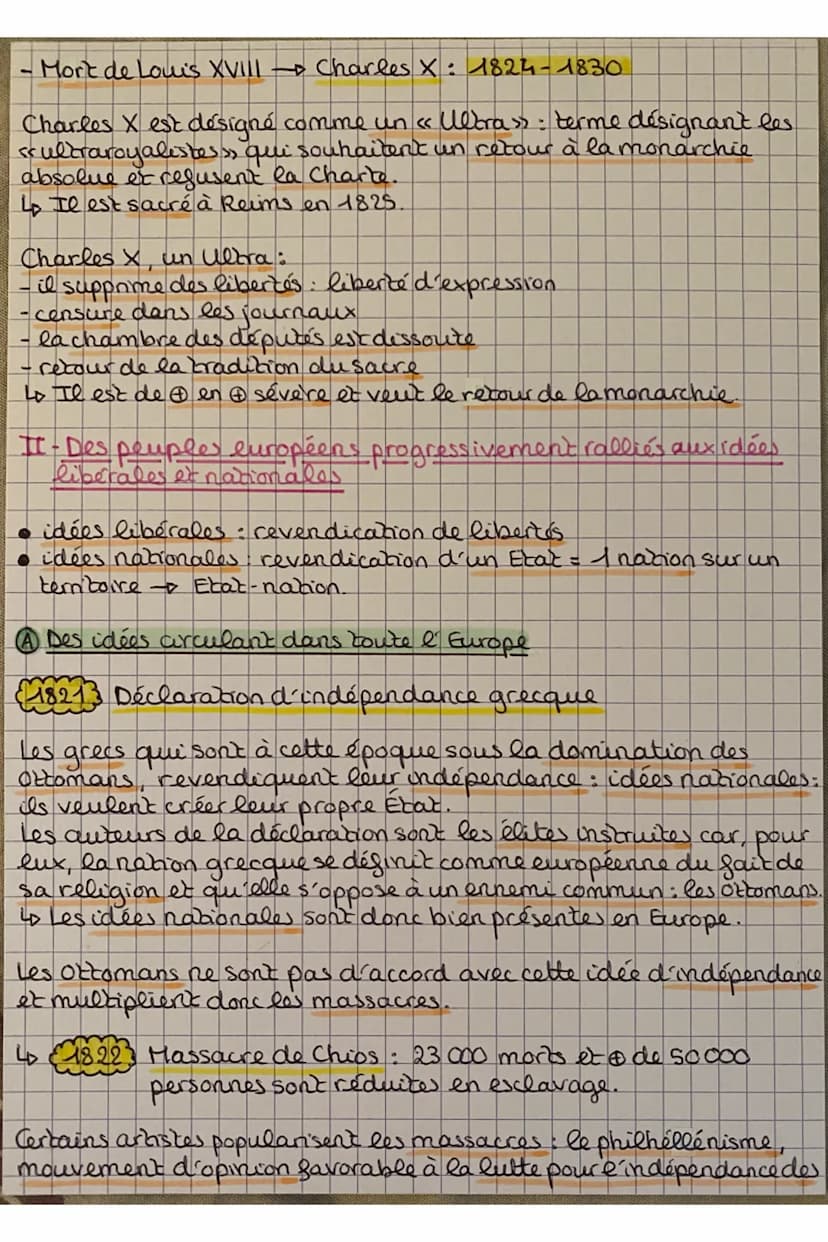 - Mort de Louis XVIII → Charles X : 1824-1830
Charles X est désigné comme un « Ultra » : terme désignant les
« ultraroyalistes » qui souhaitent un retour à la monarchie
absolue et refusent la Charte.
↳ Il est sacré à Reims en 1825.
Charles X, un Ultra :
- il supprime des libertés : liberté d'expression
- censure dans les journaux
- la chambre des députés est dissoute
- retour de la tradition du sacre
↳ Il est de ⊕ en ⊕ sévère et veut le retour de la monarchie.
II - Des peuples européens progressivement ralliés aux idées
libérales et nationales
• idées libérales : revendication de libertés
• idées nationales : revendication d'un Etat = 1 nation sur un
territoire → Etat-nation.
Ⓐ Des idées circulant dans toute l'Europe
1821 Déclaration d'indépendance grecque
Les grecs qui sont à cette époque sous la domination des
Ottomans, revendiquent leur indépendance : idées nationales :
ils veulent créer leur propre État.
Les auteurs de la déclaration sont les élites instruites car, pour
eux, la nation grecque se définit comme européenne du fait de
sa religion et qu'elle s'oppose à un ennemi commun : les Ottomans.
↳ Les idées nationales sont donc bien présentes en Europe.
Les Ottomans ne sont pas d'accord avec cette idée d'indépendance
et multiplient donc les massacres.
↳ 1822 Massacre de Chios : 23 000 morts et ⊕ de 50 000
personnes sont réduites en esclavage.
Certains artistes popularisent les massacres : le philhéllénisme,
mouvement d'opinion favorable à la lutte pour l'indépendance des